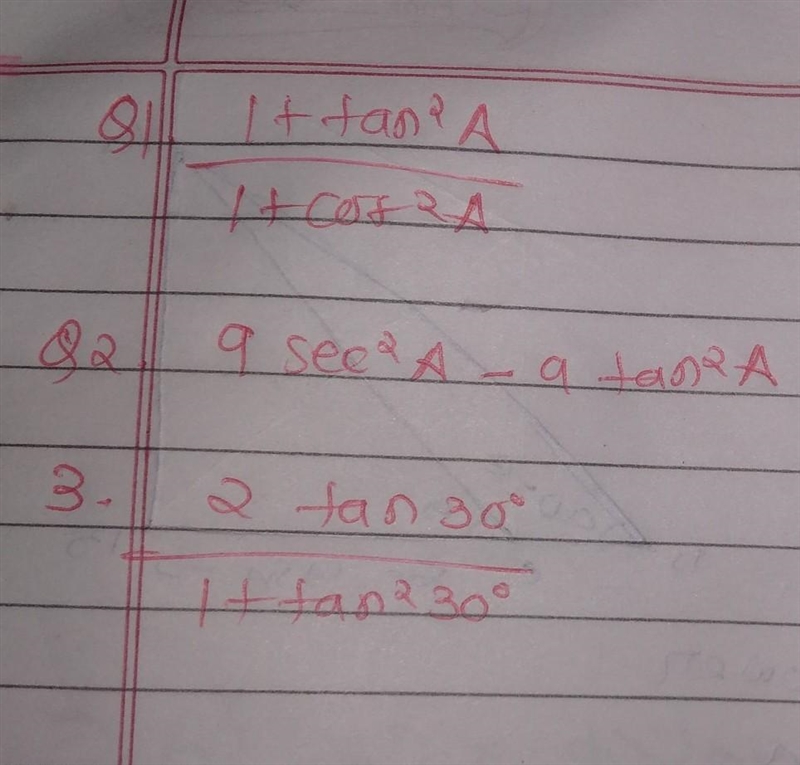 Q1 1 + tan²A
1 + cot²A
Q2 9 sec²A - 9 tan²A
3. 2 tan 30°
1 + tan²30°